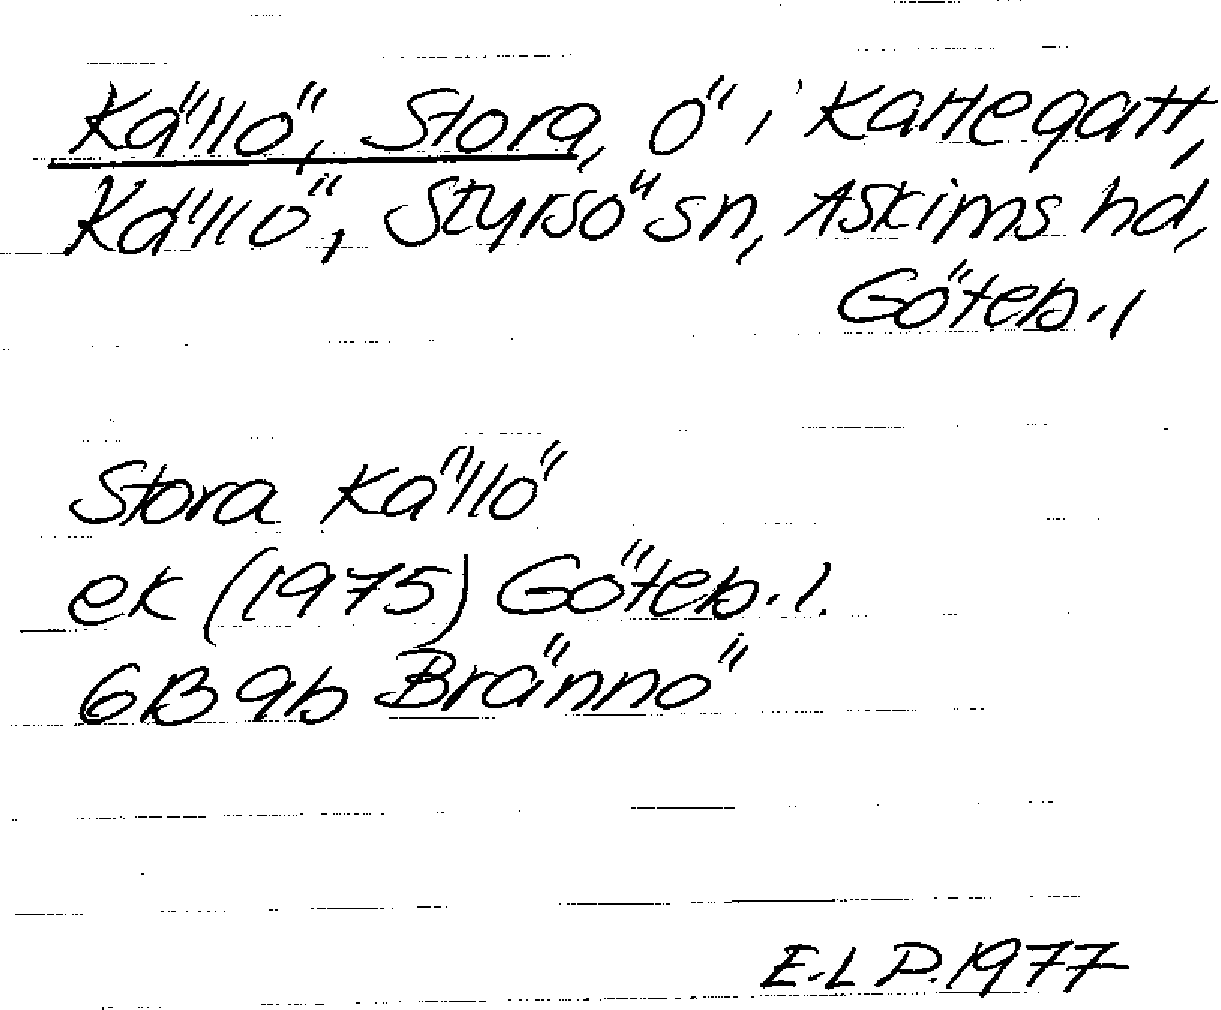 Källö, Stora, ö i Kattegatt,
Källö, Styrsö sn, Askims hd,
Göteb. l
Stora Källö
ek (1975) Göteb. l.
6B 9b Brännö
E.L P. 1977